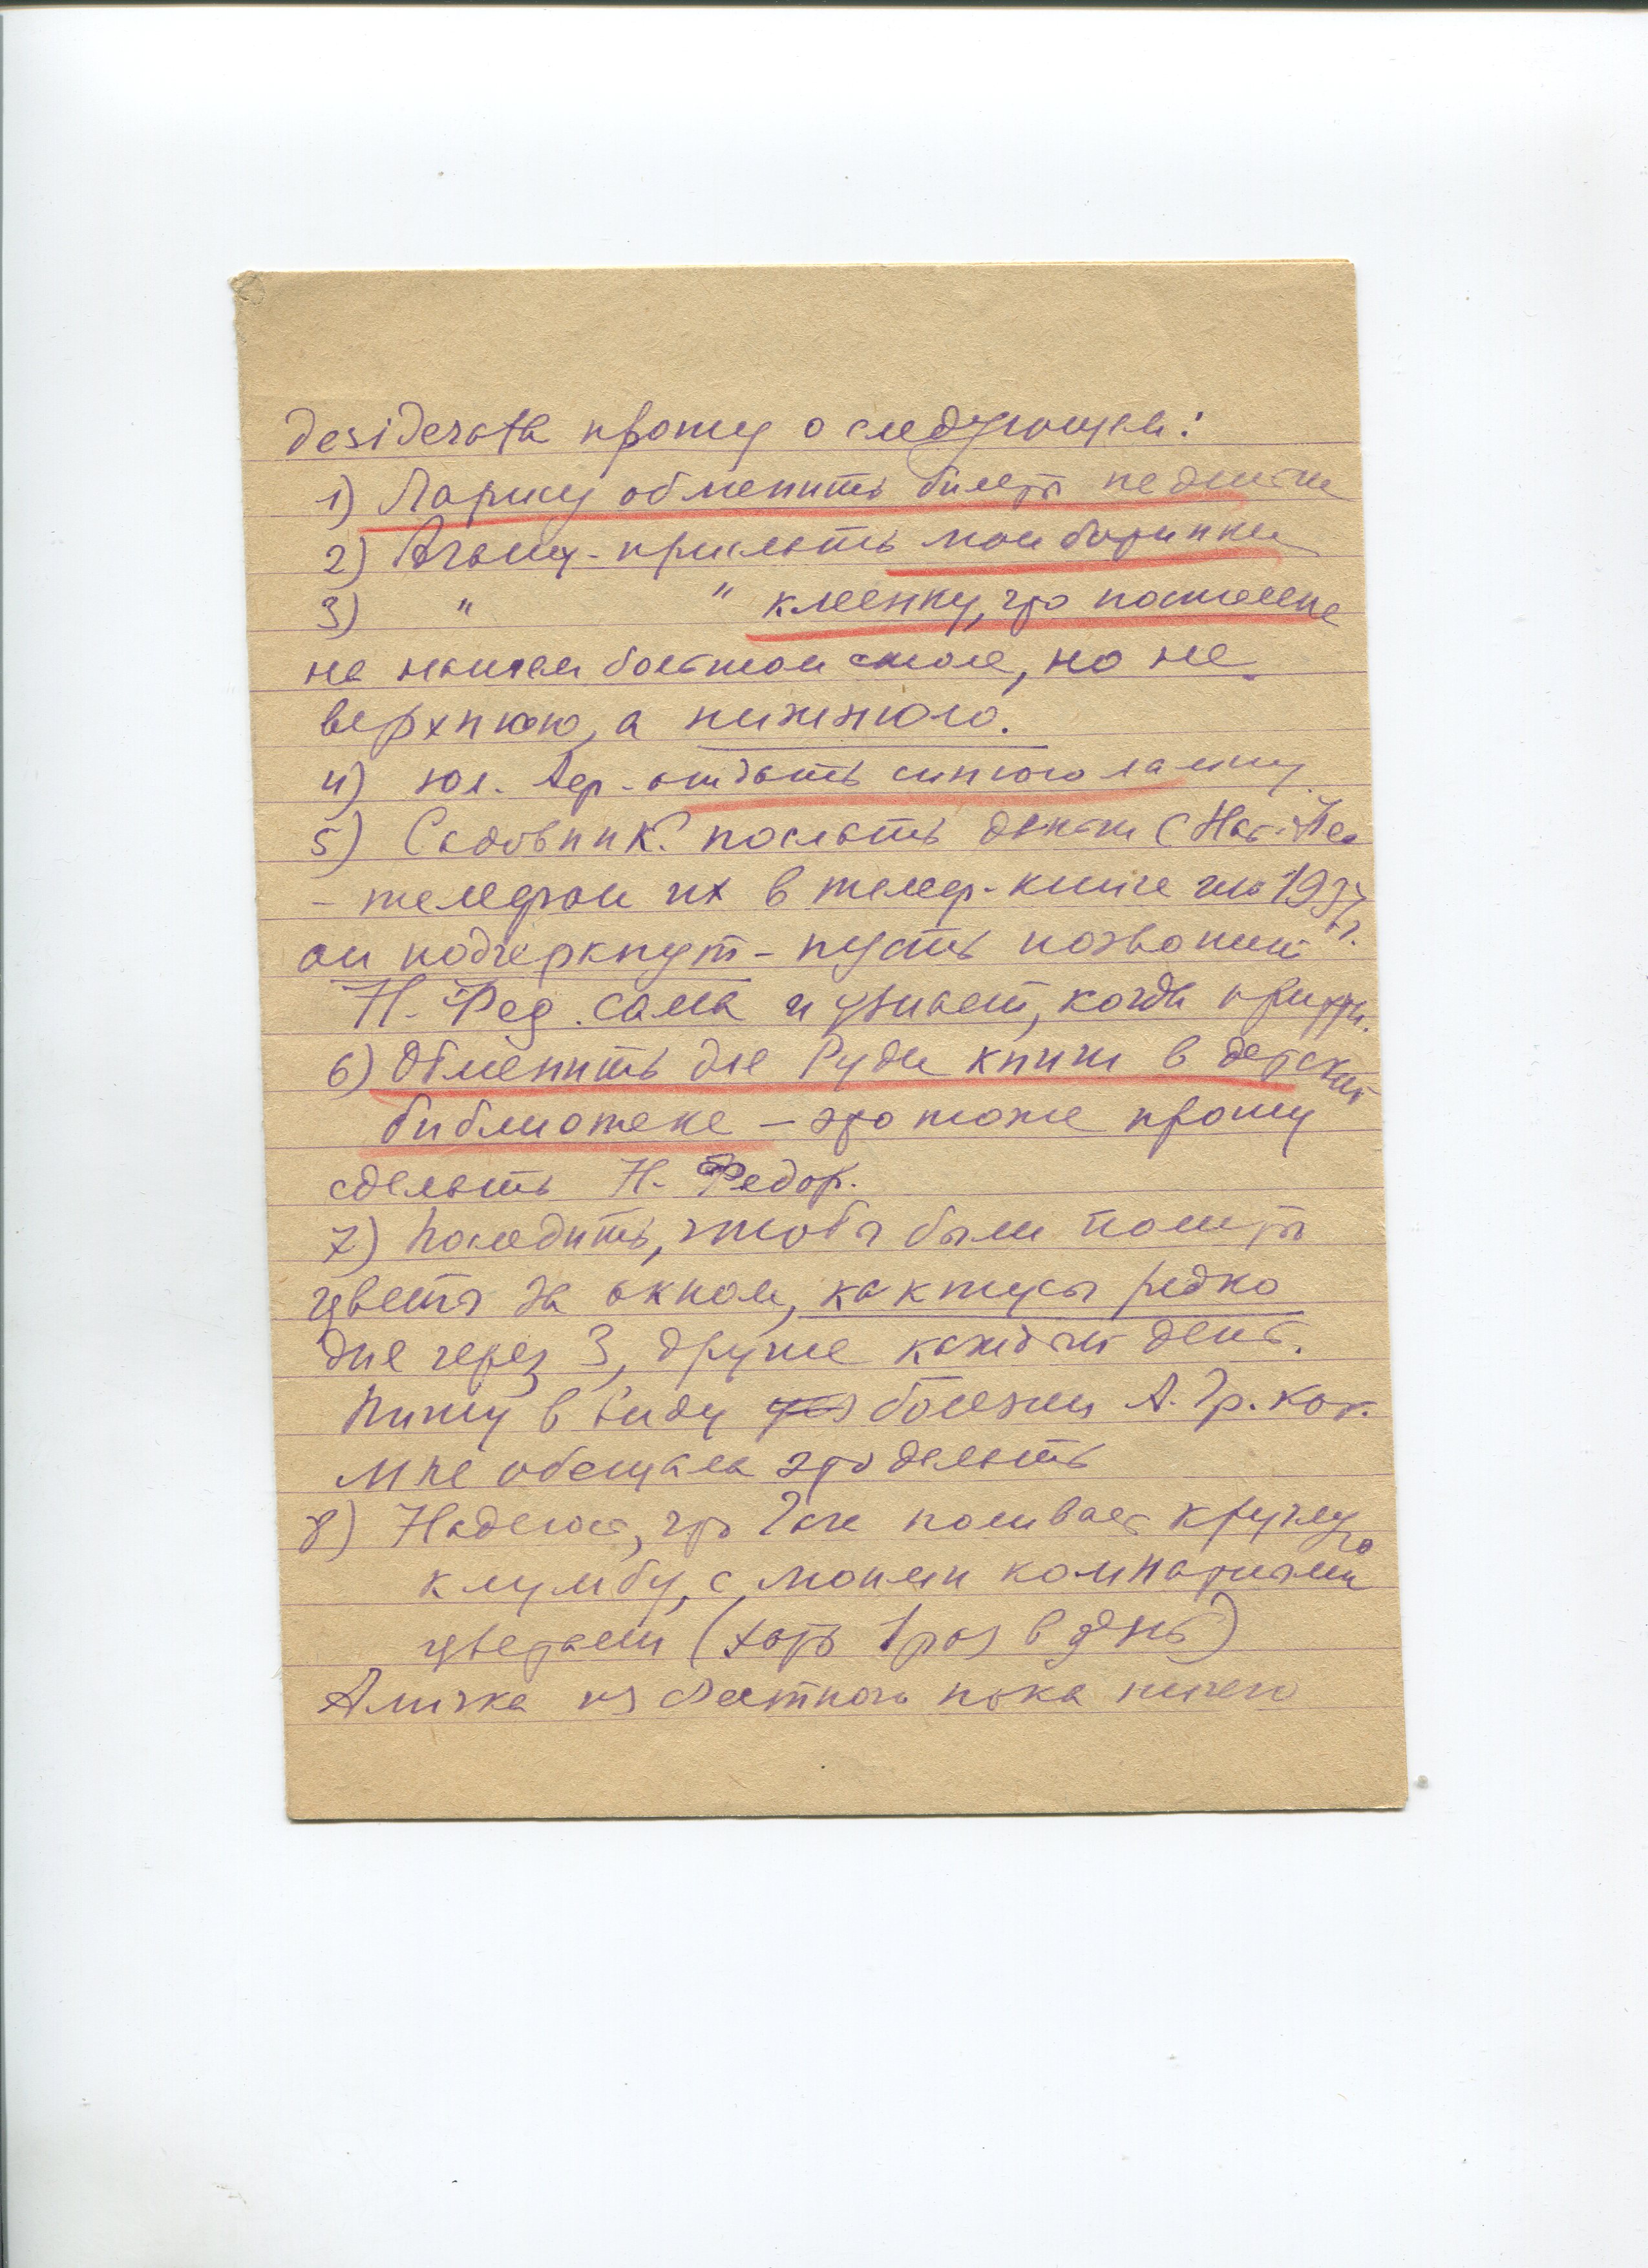 desiderata прошу о следующем:
1) Ларису обменить билеты
2) Агашу - прислать мои ботинки
3) " " клеенку, что постелена
на нашем большом столе, но не
верхнюю, а нижнюю.
4) Юл. отдать синюю лампу
5) Садовник. послать деньги
- телефон их в телеф. книге на 1937 г.
он подчеркнут - пусть позвонит
Н. Фед. сама и узнает, когда
6) Обменить для Руди книги в детской
библиотеке - это тоже прошу
сделать Н. Федор.
7) Последить, чтобы были политы
цветы за окном, кактусы редко
дня через 3, другие каждый день.
Пишу в виду болезни А. Гр. кот.
мне обещала это делать
8) Надеюсь, что поливает круглую
клумбу, с моими комнатными
цветами (хоть 1 раз в день)
Аличка из пока ничего